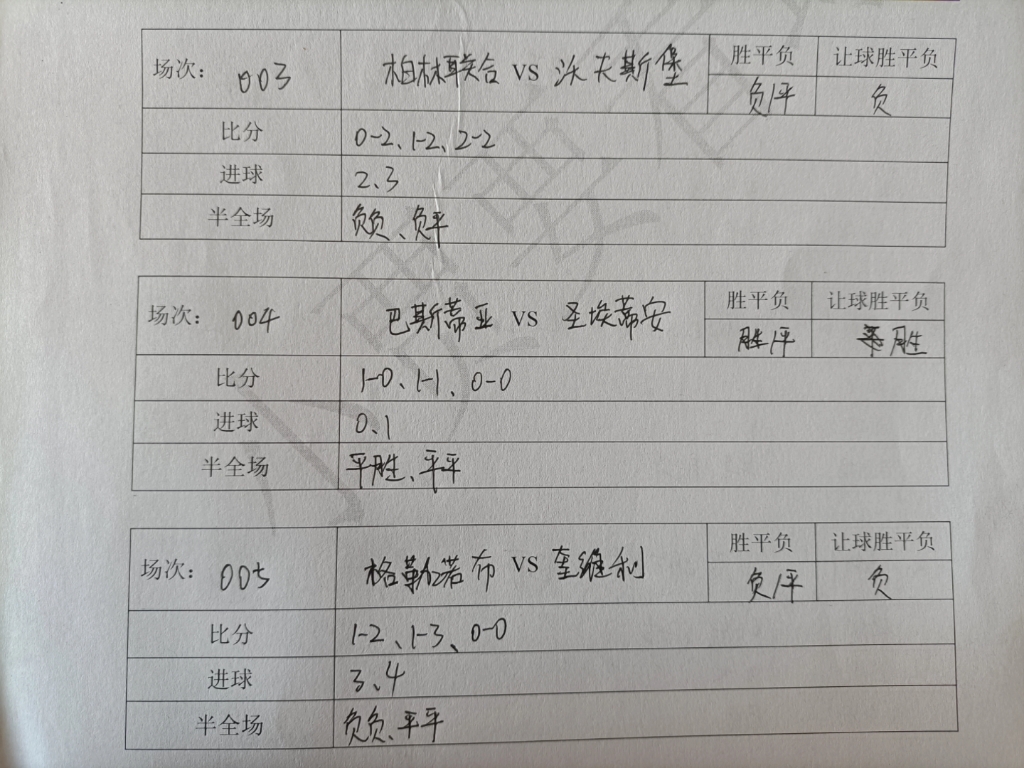 场次：003 柏林联合 VS 沃夫斯堡 胜平负 让球胜平负
负/平 负
比分 0-2、1-2、2-2
进球 2、3
半全场 负负、负平
场次：004 巴斯蒂亚 VS 圣埃蒂安 胜平负 让球胜平负
胜/平 胜
比分 1-0、1-1、0-0
进球 0、1
半全场 平胜、平平
场次：005 格勒诺布 VS 奎维利 胜平负 让球胜平负
负/平 负
比分 1-2、1-3、0-0
进球 3、4
半全场 负负、平平